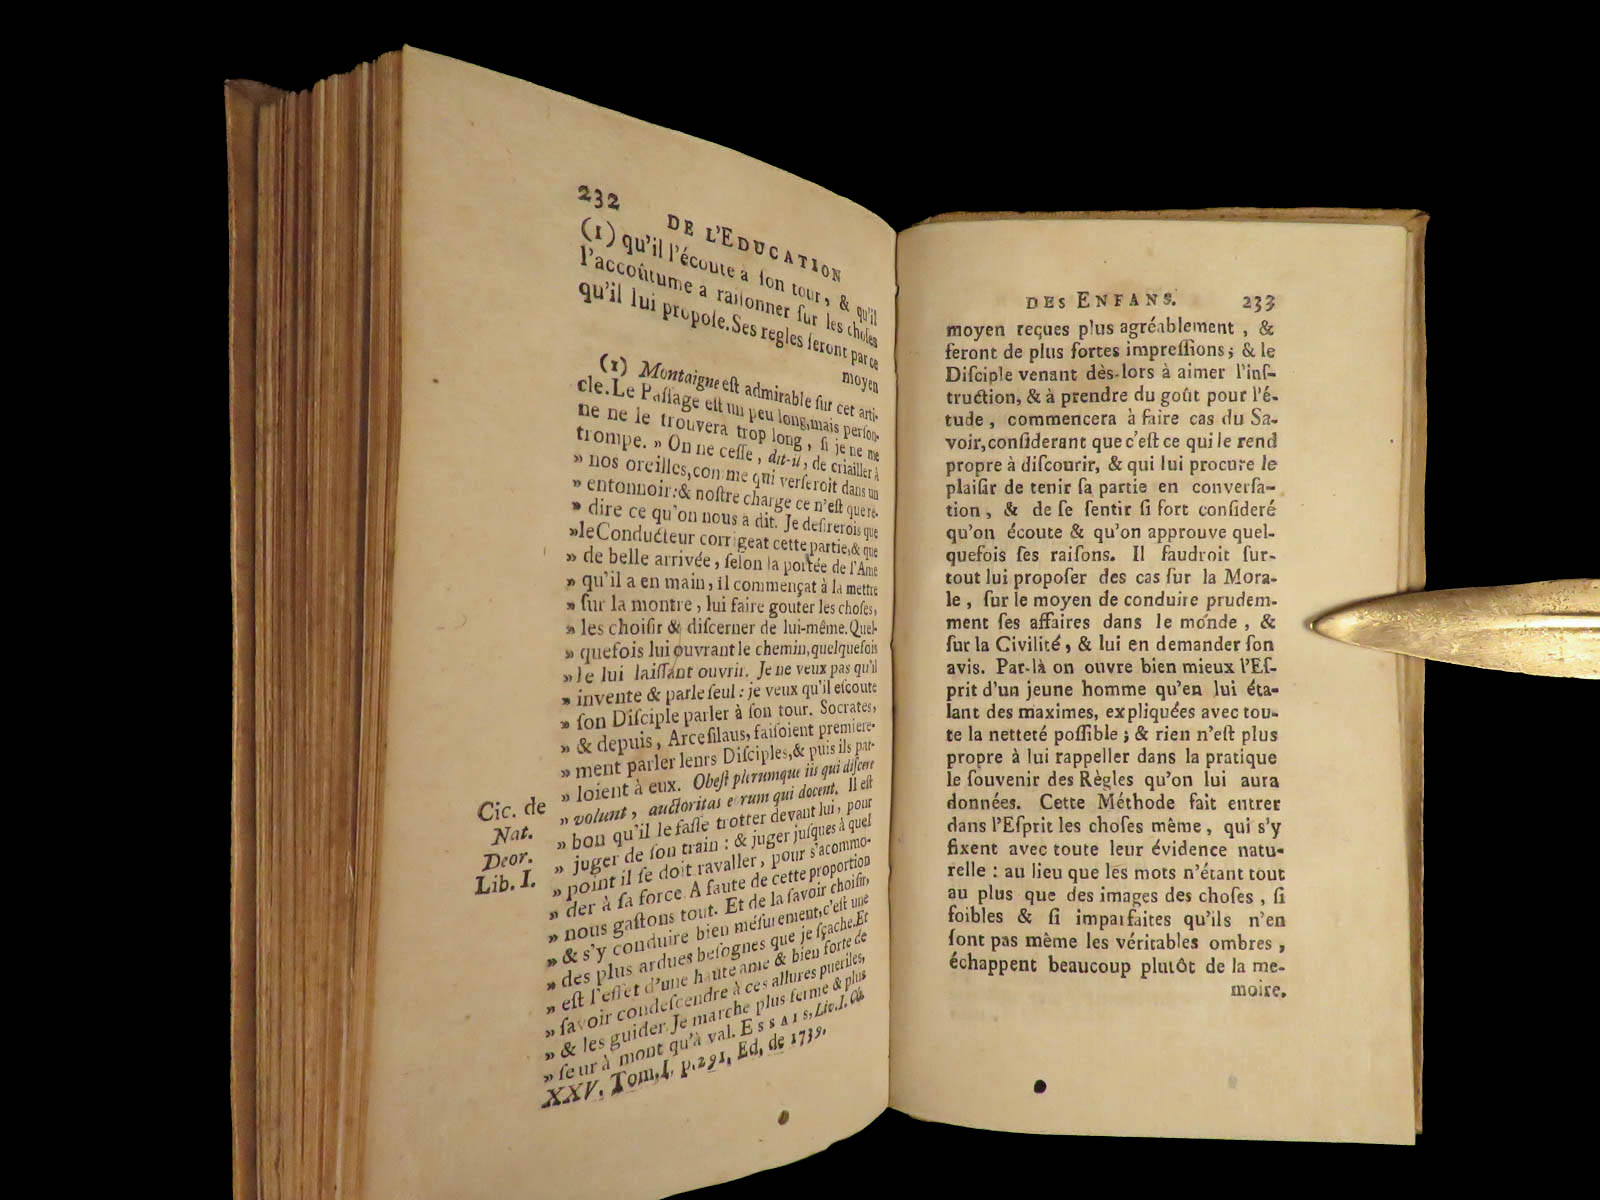 232
DE L'EDUCATION
(1) qu'il l'écoute à ſon tour, & qu'il
l'accoûtume à raiſonner ſur les choſes
qu'il lui propoſe. Ses regles ſeront par ce
moyen
(1) Montaigne eſt admirable ſur cet arti-
cle. Le Paſſage eſt un peu long, mais perſon-
ne ne le trouvera trop long, ſi je ne me
trompe. » On ne ceſſe, dit-il, de criailler à
» nos oreilles, comme qui verſeroit dans un
» entonnoir: & noſtre charge ce n'eſt que re-
» dire ce qu'on nous a dit. Je deſirerois que
» le Conducteur corrigeat cette partie, & que
» de belle arrivée, ſelon la portée de l'Ame
» qu'il a en main, il commençat à la mettre
» ſur la montre, lui faire gouter les choſes,
» les choiſir & diſcerner de lui-même. Quel-
» quefois lui ouvrant le chemin, quelquefois
» le lui laiſſant ouvrir. Je ne veux pas qu'il
» invente & parle ſeul : je veux qu'il eſcoute
» ſon Diſciple parler à ſon tour. Socrates,
» & depuis, Arceſilaus, faiſoient premiere-
» ment parler lenrs Diſciples, & puis ils par-
» loient à eux. Obeſt plerumque iis qui diſcere
» volunt, auctoritas eorum qui docent. Il eſt
» bon qu'il le faſſe trotter devant lui, pour
» juger de ſon train : & juger juſques à quel
» point il ſe doit ravaller, pour s'accommo-
» der à ſa force. A faute de cette proportion
» nous gaſtons tout. Et de la ſavoir choiſir,
» & s'y conduire bien meſurement, c'eſt une
» des plus ardues beſognes que je ſçache. Et
» eſt l'effet d'une haute ame & bien forte de
» ſavoir condeſcendre à ces allures pueriles,
» & les guider. Je marche plus ferme & plus
» ſeur à mont qu'à val. Essais, Liv. I. Ch.
XXV. Tom. I. p. 291, Ed, de 1739.
Cic. de
Nat.
Deor.
Lib. I.
DES ENFANS. 233
moyen reçues plus agréablement, &
feront de plus fortes impreſſions; & le
Diſciple venant dès-lors à aimer l'inſ-
truction, & à prendre du goût pour l'é-
tude, commencera à faire cas du Sa-
voir, conſiderant que c'eſt ce qui le rend
propre à diſcourir, & qui lui procure le
plaiſir de tenir ſa partie en converſa-
tion, & de ſe ſentir ſi fort conſideré
qu'on écoute & qu'on approuve quel-
quefois ſes raiſons. Il faudroit ſur-
tout lui propoſer des cas ſur la Mora-
le, ſur le moyen de conduire prudem-
ment ſes affaires dans le monde, &
ſur la Civilité, & lui en demander ſon
avis. Par-là on ouvre bien mieux l'Eſ-
prit d'un jeune homme qu'en lui éta-
lant des maximes, expliquées avec tou-
te la netteté poſſible; & rien n'eſt plus
propre à lui rappeller dans la pratique
le ſouvenir des Règles qu'on lui aura
données. Cette Méthode fait entrer
dans l'Eſprit les choſes même, qui s'y
fixent avec toute leur évidence natu-
relle : au lieu que les mots n'étant tout
au plus que des images des choſes, ſi
foibles & ſi imparfaites qu'ils n'en
ſont pas même les véritables ombres,
échappent beaucoup plutôt de la me-
moire.